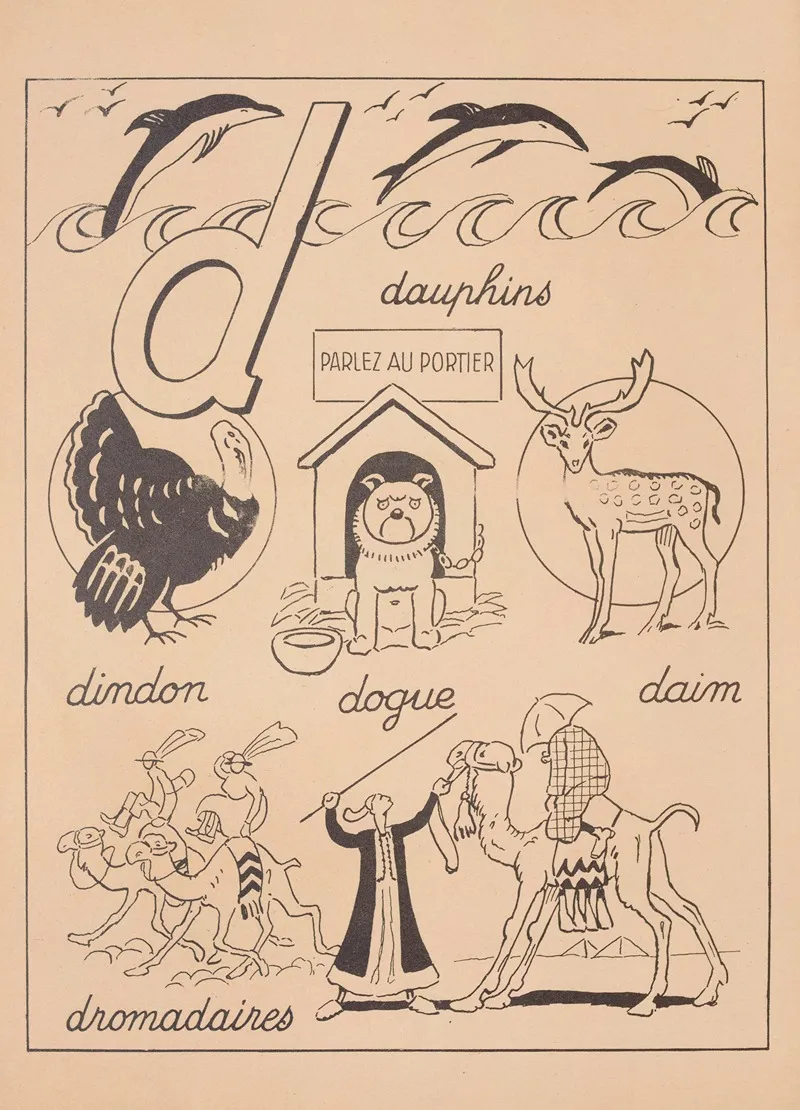 d
dauphins
PARLEZ AU PORTIER
dindon
dogue
daim
dromadaires